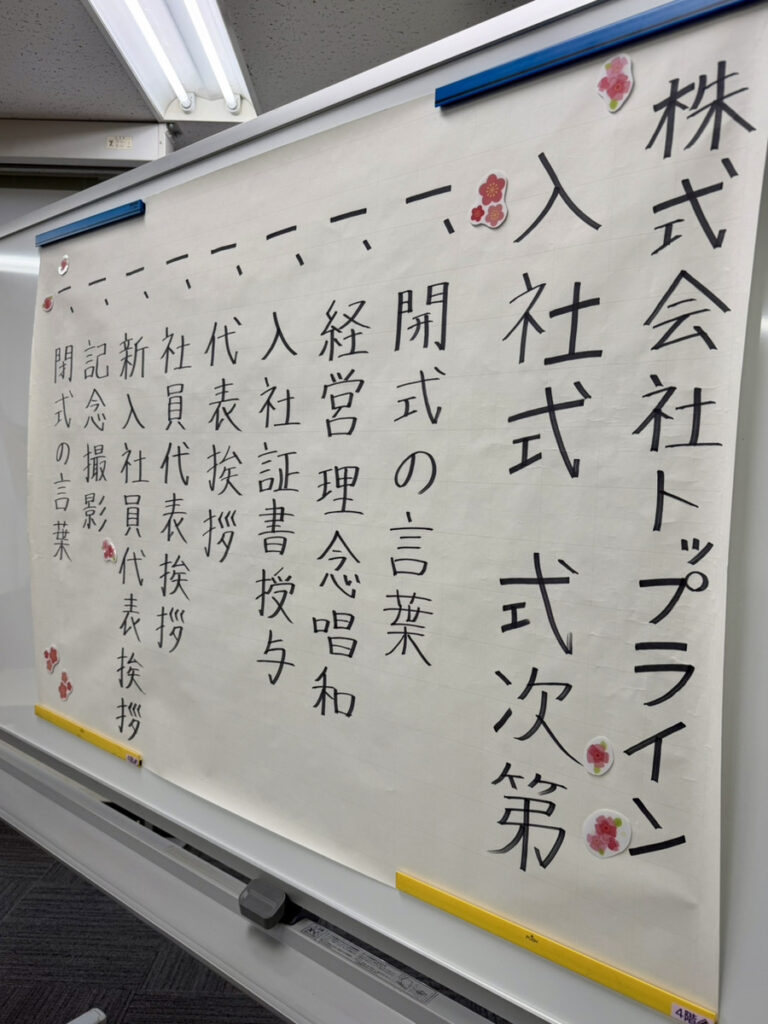 株式会社トップライン
入社式 式次第
一、開式の言葉
一、経営理念唱和
一、入社証書授与
一、代表挨拶
一、社員代表挨拶
一、新入社員代表挨拶
一、記念撮影
一、閉式の言葉
4階